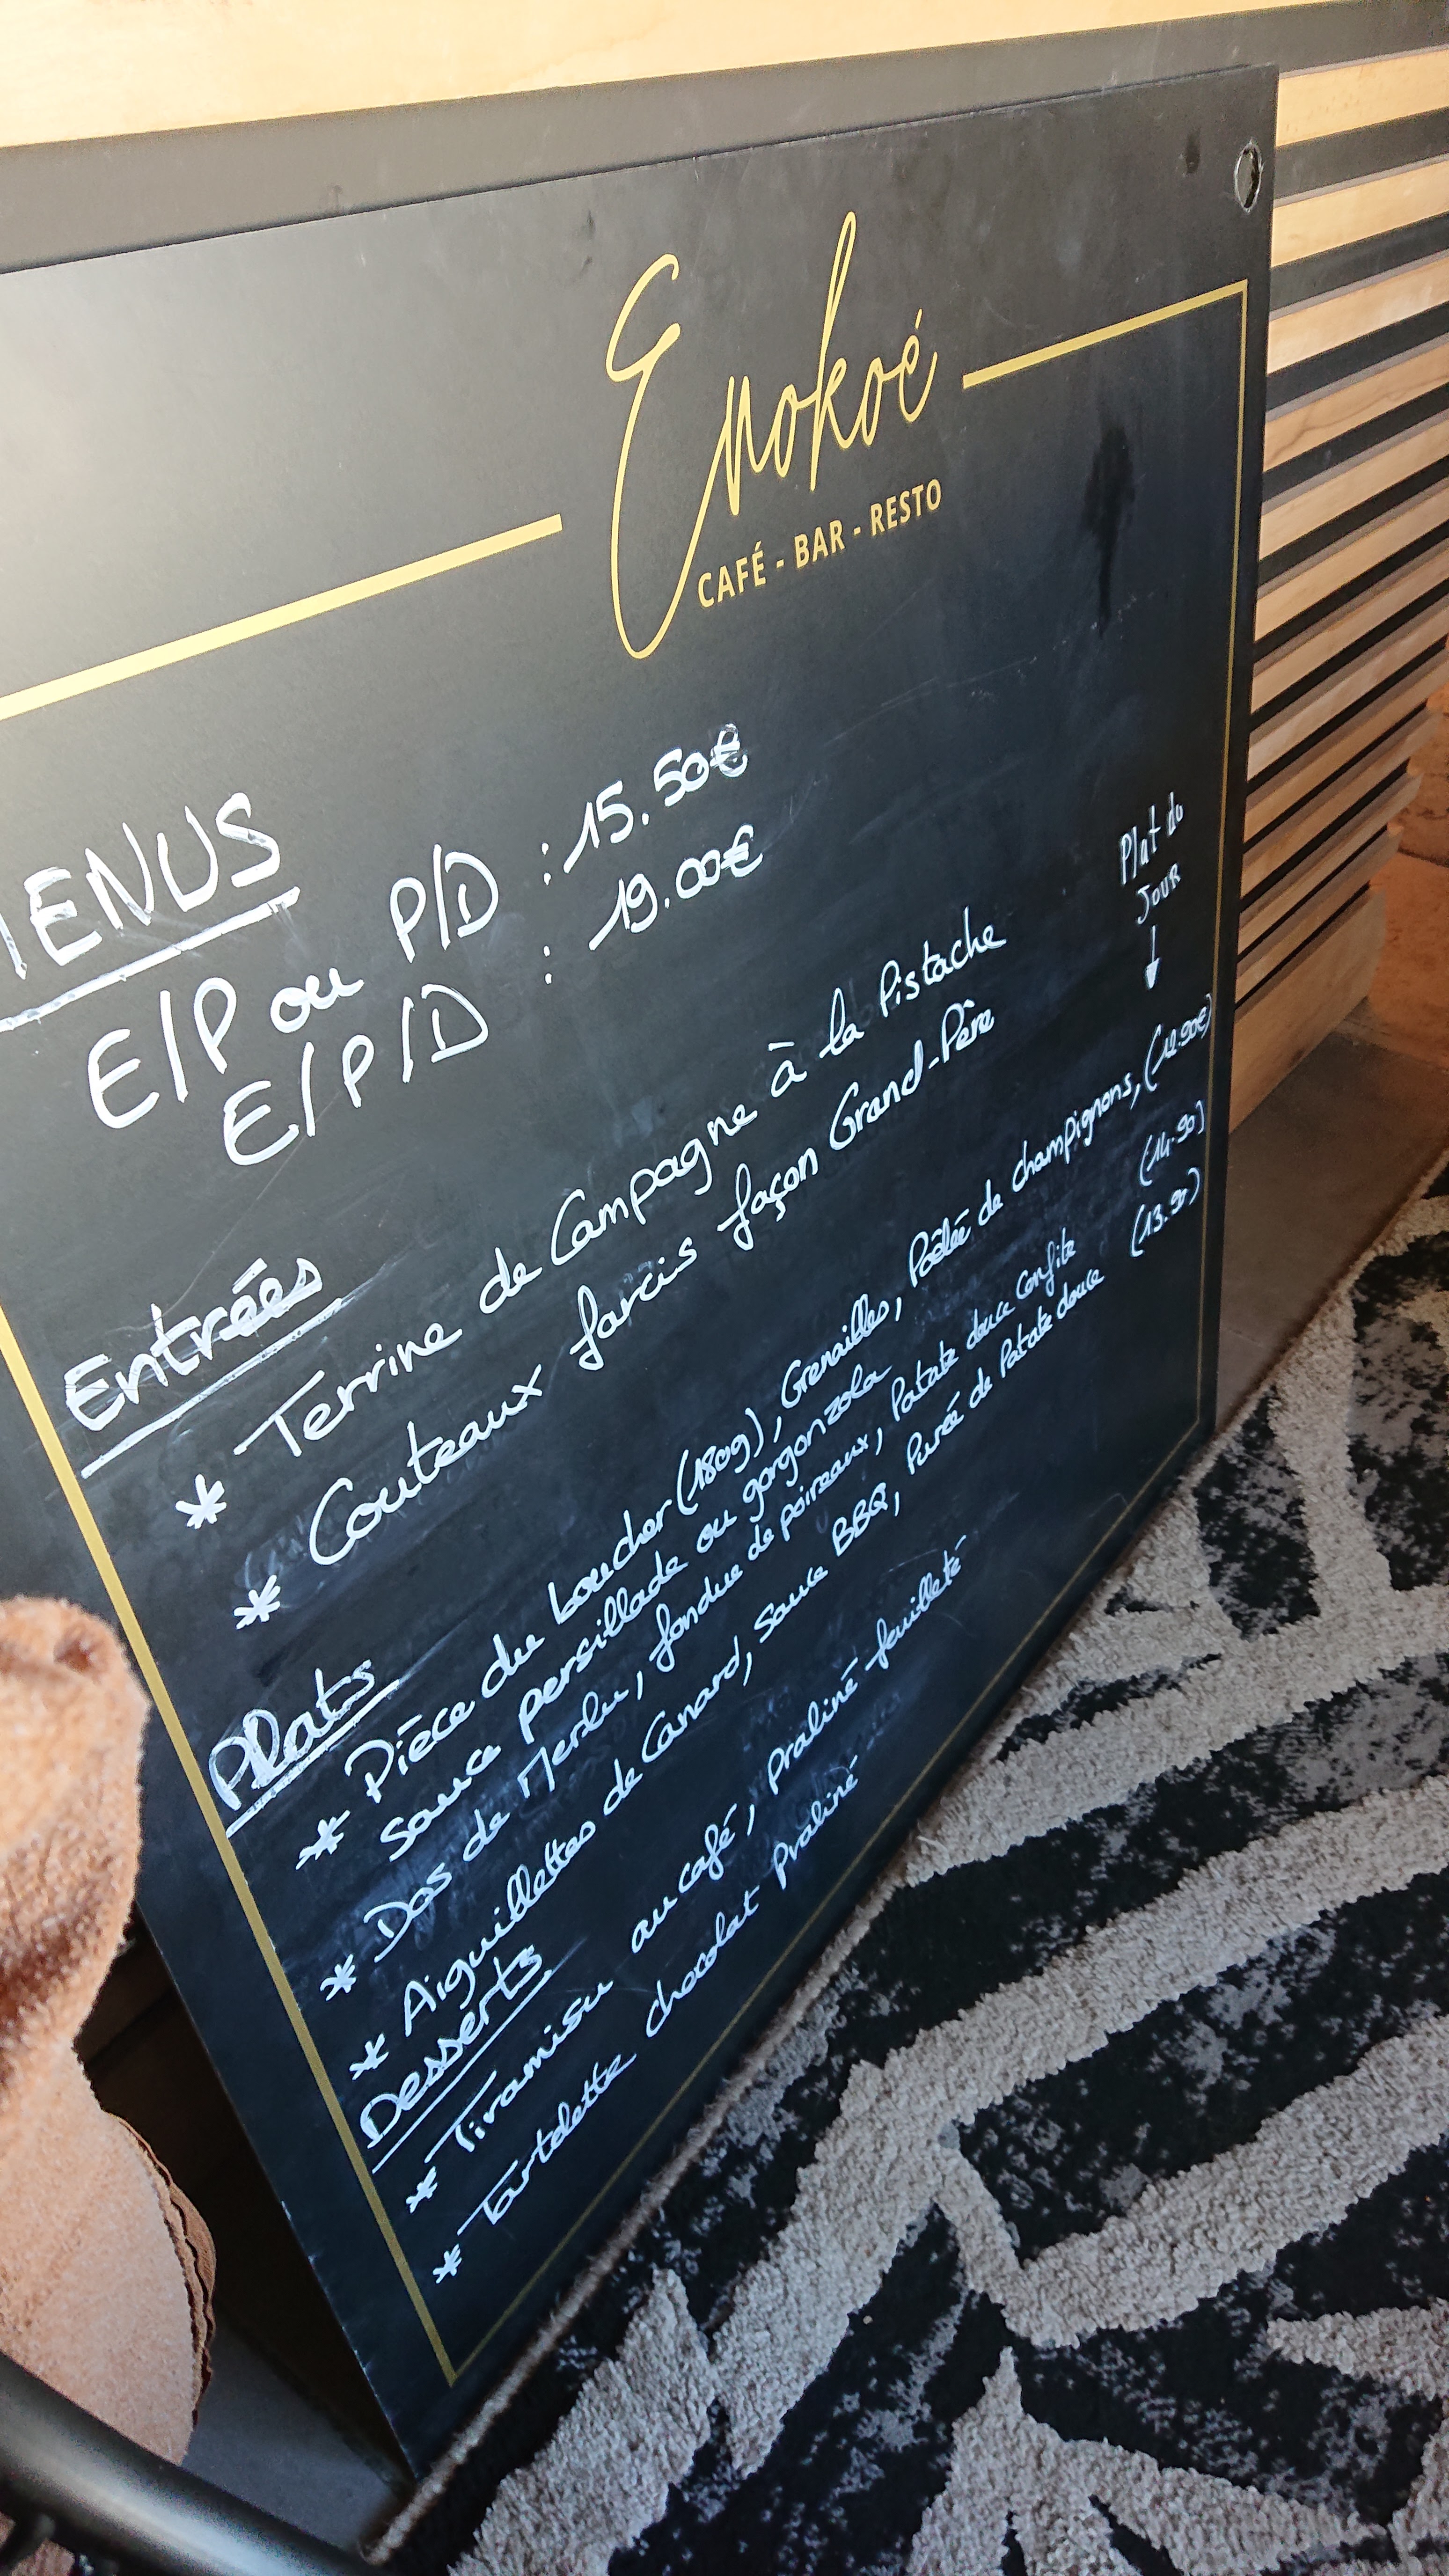 Enokoé
CAFÉ - BAR - RESTO
MENUS
E/P ou P/D : 15.50€
E/P/D : 19.00€
Plat du
JOUR
Entrées
* Terrine de Campagne à la Pistache
* Couteaux farcis façon Grand-Père
Plats
* Pièce du boucher (180g), Grenailles, Poêlée de champignons, (12.90€)
sauce persillade ou gorgonzola
* Dos de Merlu, fondue de poireaux, Patate douce confite (14.90)
* Aiguillettes de Canard, sauce BBQ, Purée de Patate douce (13.90)
Desserts
* Tiramisu au café, Praliné feuilleté
* Tartelette chocolat Praliné